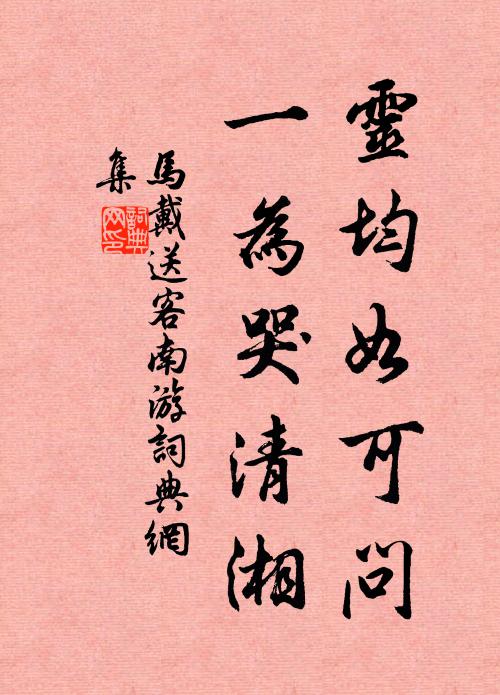 靈均如可問
一為哭清湘
馬戴送客南游詞典網
集
詞典
网印